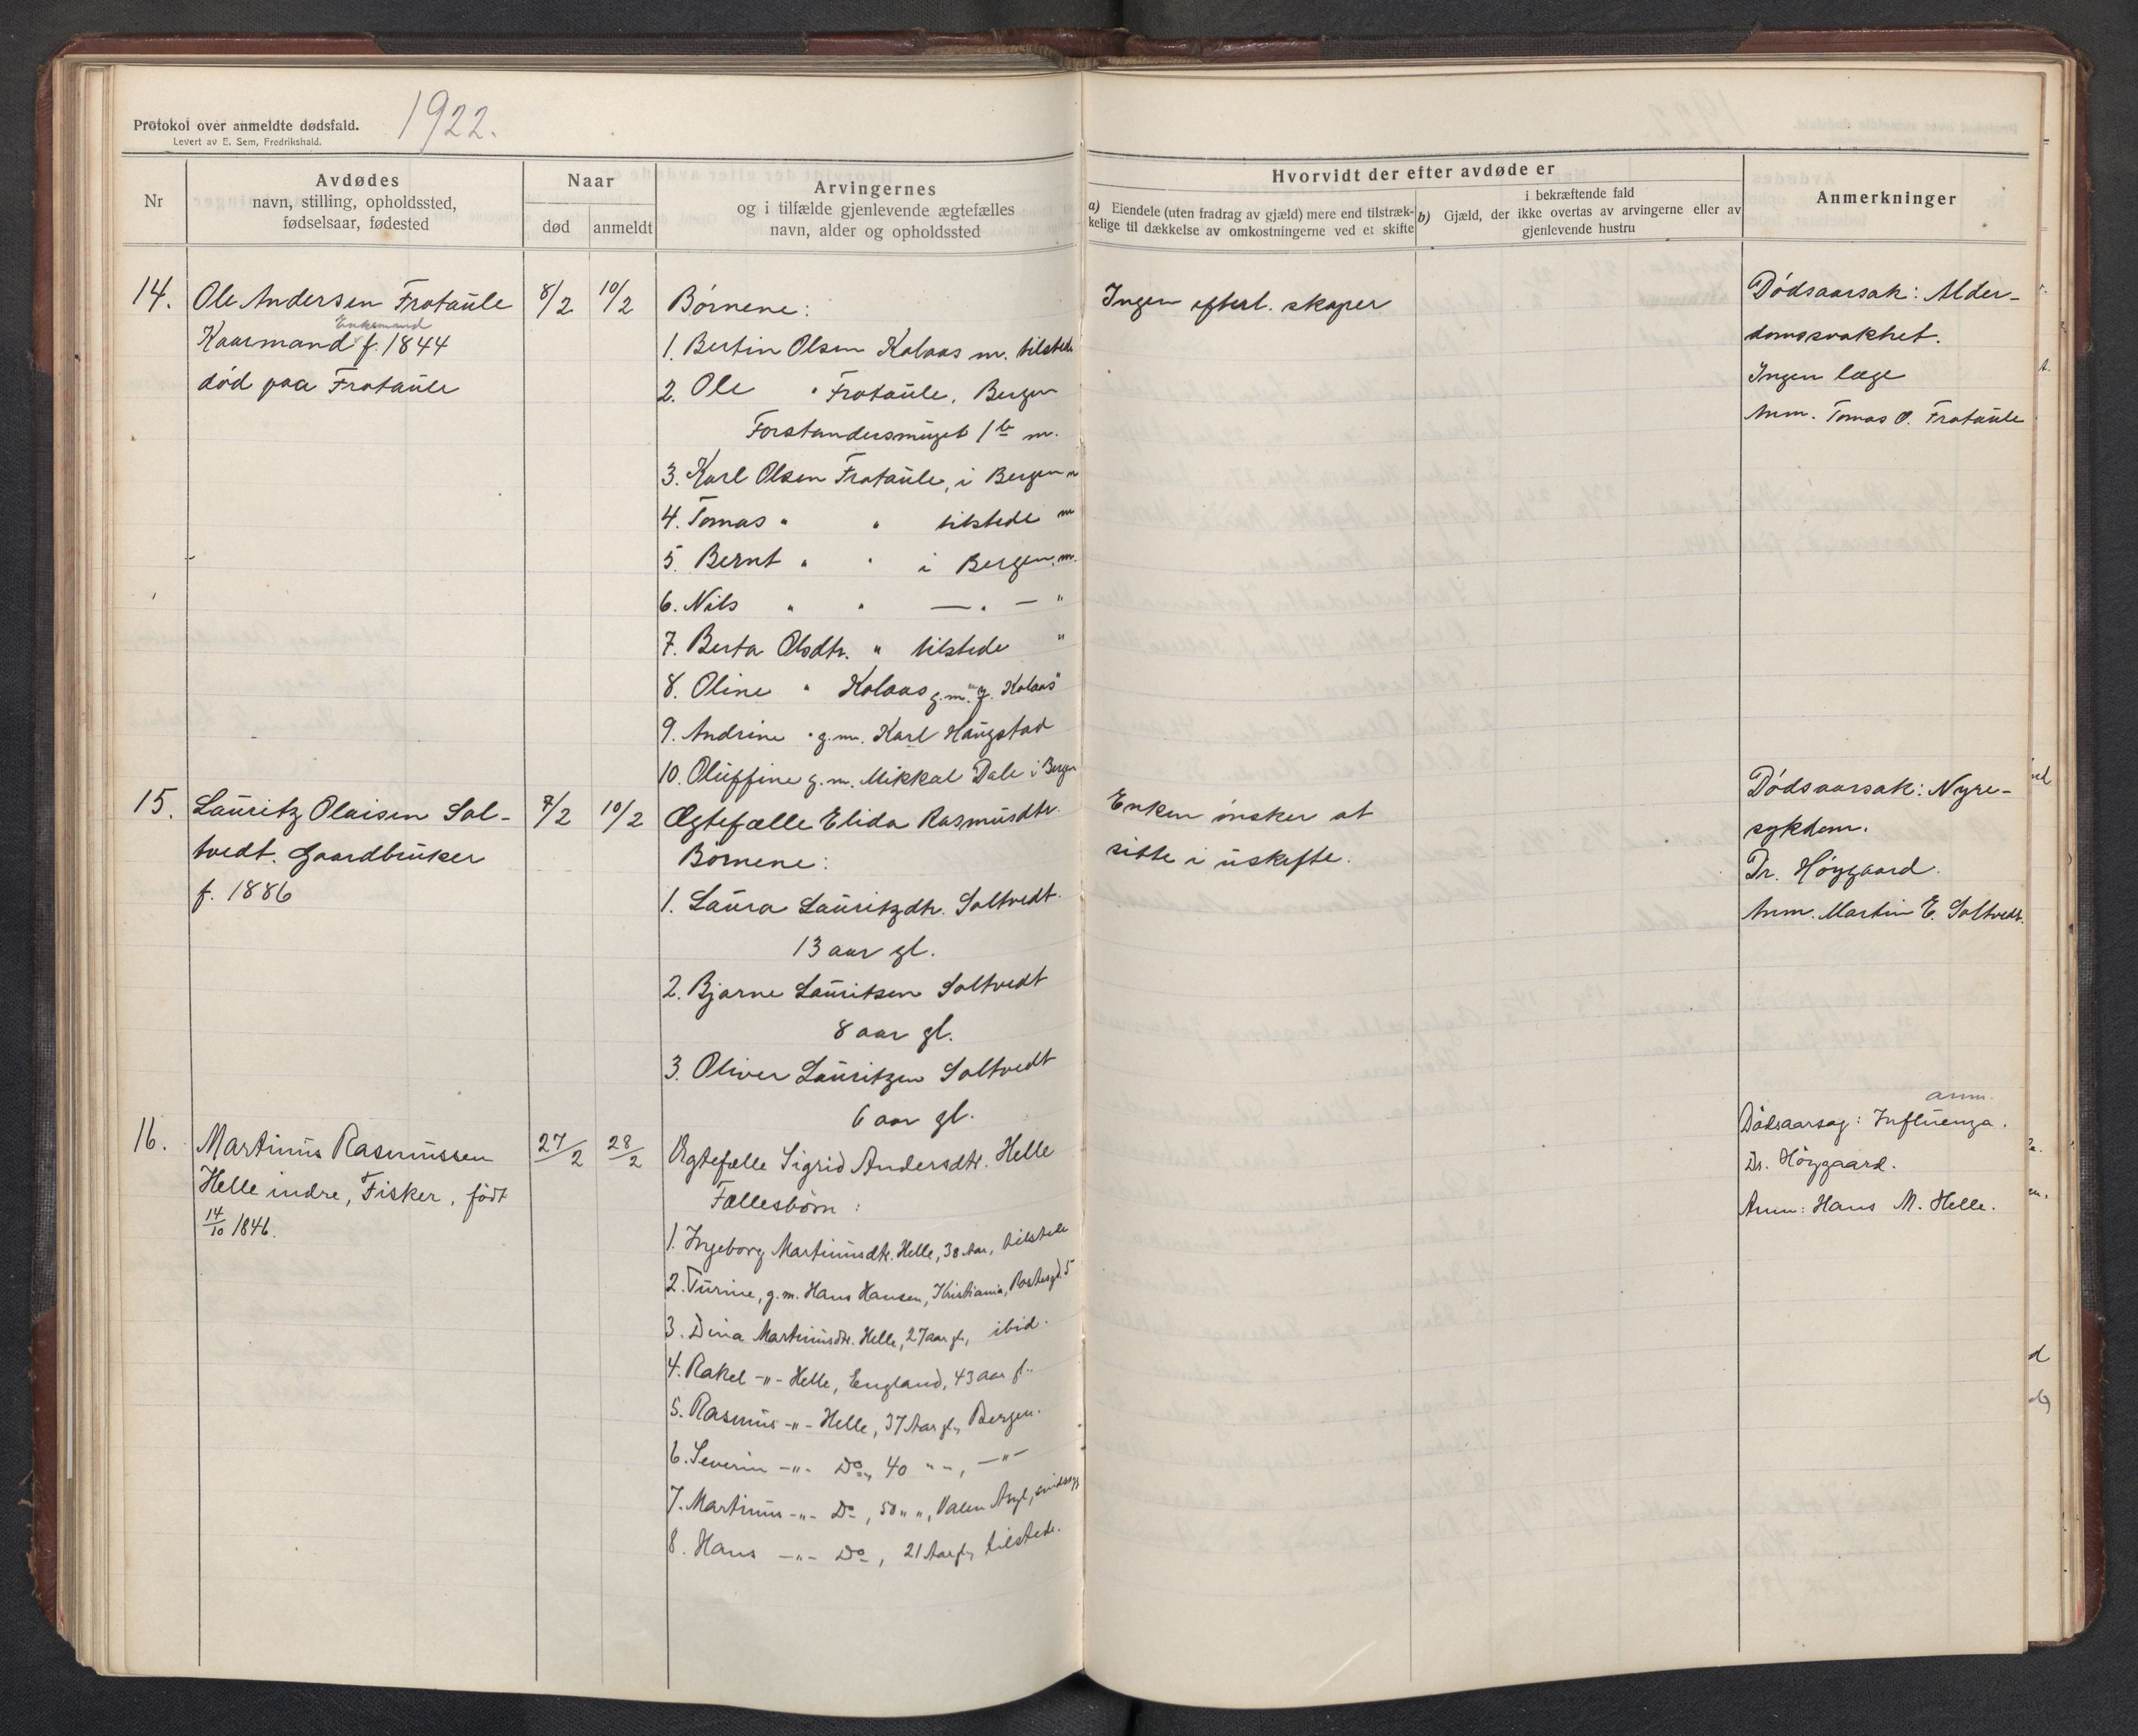 Protokol over anmeldte dødsfald.
Levert av E. Sem, Fredrikshald.
1922.
Nr
Avdødes
navn, stilling, opholdssted,
fødselsaar, fødested
Naar
død
anmeldt
Arvingernes
og i tilfælde gjenlevende ægtefælles
navn, alder og opholdssted
Hvorvidt der efter avdøde er
a) Eiendele (uten fradrag av gjæld) mere end tilstræk-
kelige til dækkelse av omkostningerne ved et skifte
i bekræftende fald
b) Gjæld, der ikke overtas av arvingerne eller av
gjenlevende hustru
Anmerkninger
14.
Ole Andersen Frotaule
Enkemand
Kaarmand f. 1844
død paa Frotaule
8/2
10/2
Børnene:
1. Bertin Olsen Kolaas m. tilstede
2. Ole " Frotaule, Bergen
Forstandersmuget 1 b m.
3. Karl Olsen Frotaule, i Bergen m
4. Tomas " " tilstede m
5. Bernt " " i Bergen, m.
6. Nils " " — " — "
7. Berta Olsdtr. " tilstede "
8. Oline " Kolaas g.m. " g. Kolaas "
9. Andrine " g.m. Karl Haugstad
10. Oluffine g.m. Mikkal Dale i Bergen
Ingen efterl. skaper
Dødsaarsak: Alder-
domssvakhet.
Ingen læge
Anm. Tomas O. Frotaule
15.
Lauritz Olaisen Sol-
tvedt. Gaardbruker
f. 1886
7/2
10/2
Ægtefælle Elida Rasmusdtr.
Børnene:
1. Laura Lauritzdtr. Soltvedt.
13 aar gl.
2. Bjarne Lauritsen Soltvedt
8 aar gl.
3. Oliver Lauritzen Soltvedt
6 aar gl.
Enken ønsker at
sitte i uskifte.
Dødsaarsak: Nyre-
sykdom.
Dr. Høygaard.
Anm. Martin E. Soltvedt.
16.
Martinus Rasmussen
Helle indre, Fisker, født
14/10 1846.
27/2
28/2
Ægtefælle Sigrid Andersdtr. Helle
Fællesbørn:
1. Ingeborg Martinusdtr. Helle, 38 Aar, tilstede
2. Turine, g.m. Hans Hansen, Kristiania, 5
3. Dina Martinusdtr. Helle, 27 aar gl., ibid.
4. Rakel -"- Helle, England, 43 aar gl.
5. Rasmus -"- Helle, 37 Aar gl., Bergen.
6. Severin -"- Do, 40 " ", -"-
7. Martinus -"- Do, 50 " ", Valen Asyl, sindssyg
8. Hans -"- Do, 21 Aar gl., tilstede.
anm.
Dødsaarsag: Influenza.
Dr. Høygaard.
Anm: Hans M. Helle.